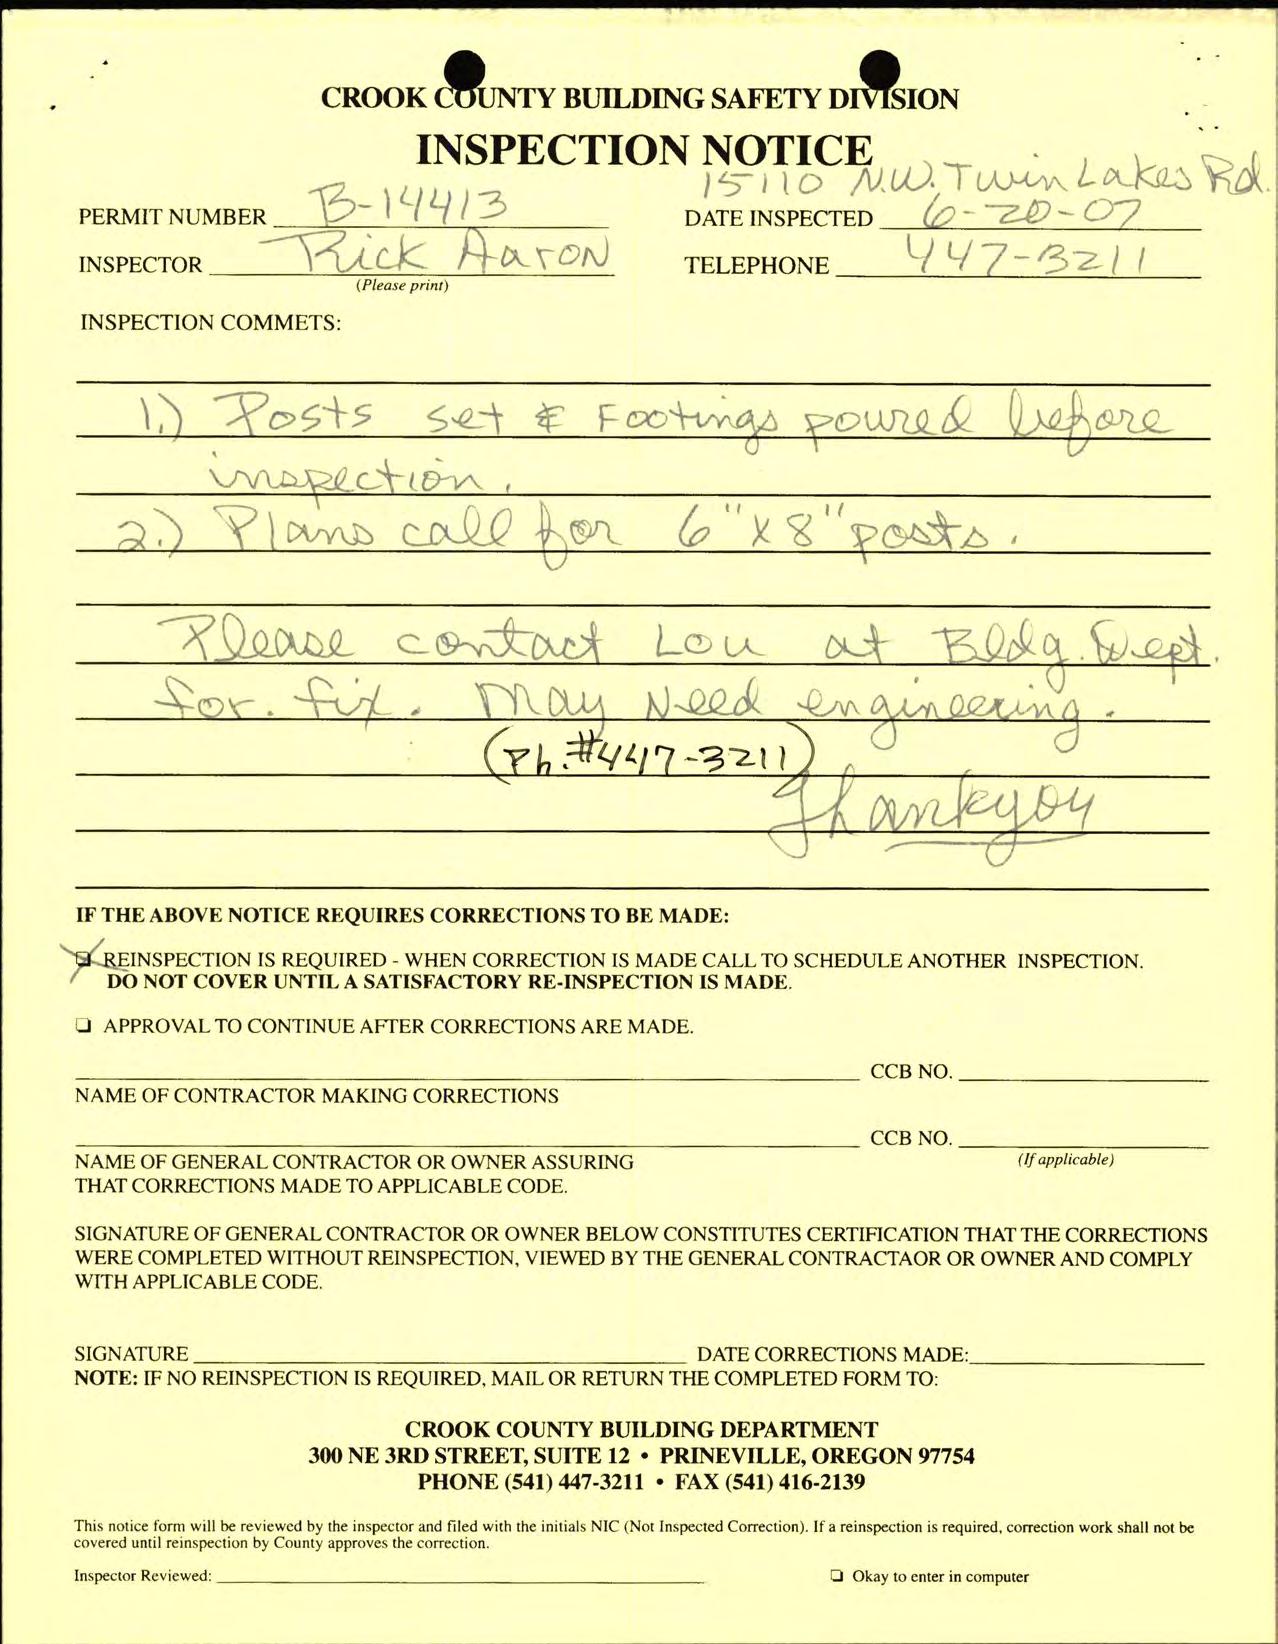 CROOK COUNTY BUILDING SAFETY DIVISION
INSPECTION NOTICE
15110 N.W. Twin Lakes Rd.
PERMIT NUMBER B-14413 DATE INSPECTED 6-20-07
INSPECTOR Rick Aaron TELEPHONE 447-3211
(Please print)
INSPECTION COMMETS:
1.) Posts set & Footings poured before
inspection.
2.) Plans call for 6" x 8" posts.
Please contact Lou at Bldg. Dept.
for. fix. May Need engineering.
(Ph.#447-3211)
Thankyou
IF THE ABOVE NOTICE REQUIRES CORRECTIONS TO BE MADE:
REINSPECTION IS REQUIRED - WHEN CORRECTION IS MADE CALL TO SCHEDULE ANOTHER INSPECTION.
DO NOT COVER UNTIL A SATISFACTORY RE-INSPECTION IS MADE.
❏ APPROVAL TO CONTINUE AFTER CORRECTIONS ARE MADE.
CCB NO.
NAME OF CONTRACTOR MAKING CORRECTIONS
CCB NO.
NAME OF GENERAL CONTRACTOR OR OWNER ASSURING (If applicable)
THAT CORRECTIONS MADE TO APPLICABLE CODE.
SIGNATURE OF GENERAL CONTRACTOR OR OWNER BELOW CONSTITUTES CERTIFICATION THAT THE CORRECTIONS
WERE COMPLETED WITHOUT REINSPECTION, VIEWED BY THE GENERAL CONTRACTAOR OR OWNER AND COMPLY
WITH APPLICABLE CODE.
SIGNATURE DATE CORRECTIONS MADE:
NOTE: IF NO REINSPECTION IS REQUIRED, MAIL OR RETURN THE COMPLETED FORM TO:
CROOK COUNTY BUILDING DEPARTMENT
300 NE 3RD STREET, SUITE 12 • PRINEVILLE, OREGON 97754
PHONE (541) 447-3211 • FAX (541) 416-2139
This notice form will be reviewed by the inspector and filed with the initials NIC (Not Inspected Correction). If a reinspection is required, correction work shall not be
covered until reinspection by County approves the correction.
Inspector Reviewed: ❏ Okay to enter in computer